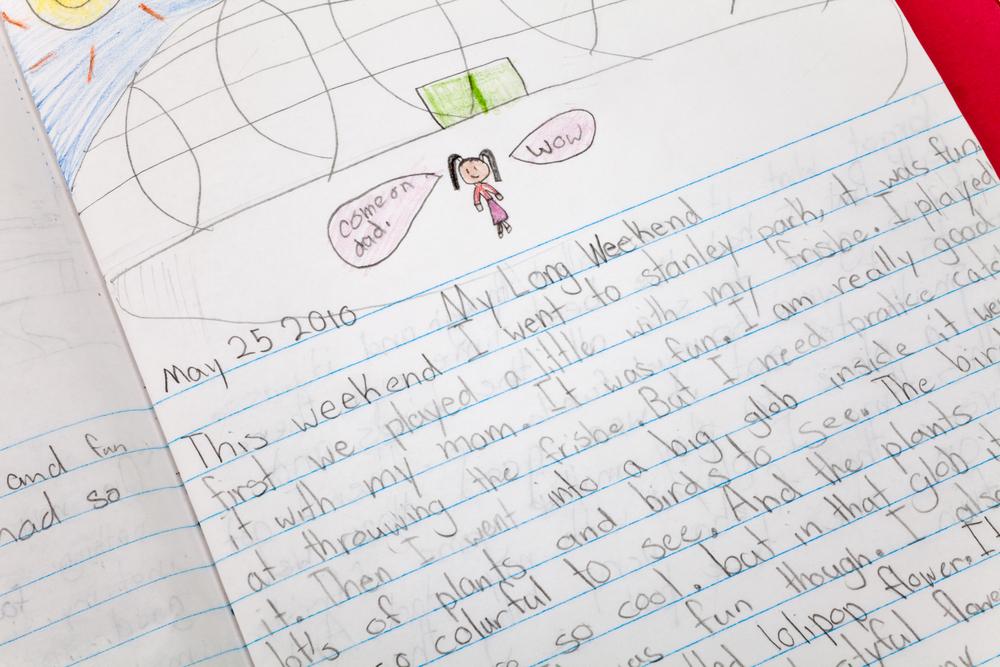 WOW
come on
dad.
My Long Weekend
May 25 2010
This weekend I went to stanley park, it was fun
first we played a little with my frisbe. I played
it with my mom. It was fun. I am really good
at throuwing the frisbe. But I need pratice
it. Then I went into a big glob inside it
lot's of plants and birds to see. The
so colurful to see. And the plants
so cool. but in that glob
was fun though. I also
lolipop flower.
and fun
had so